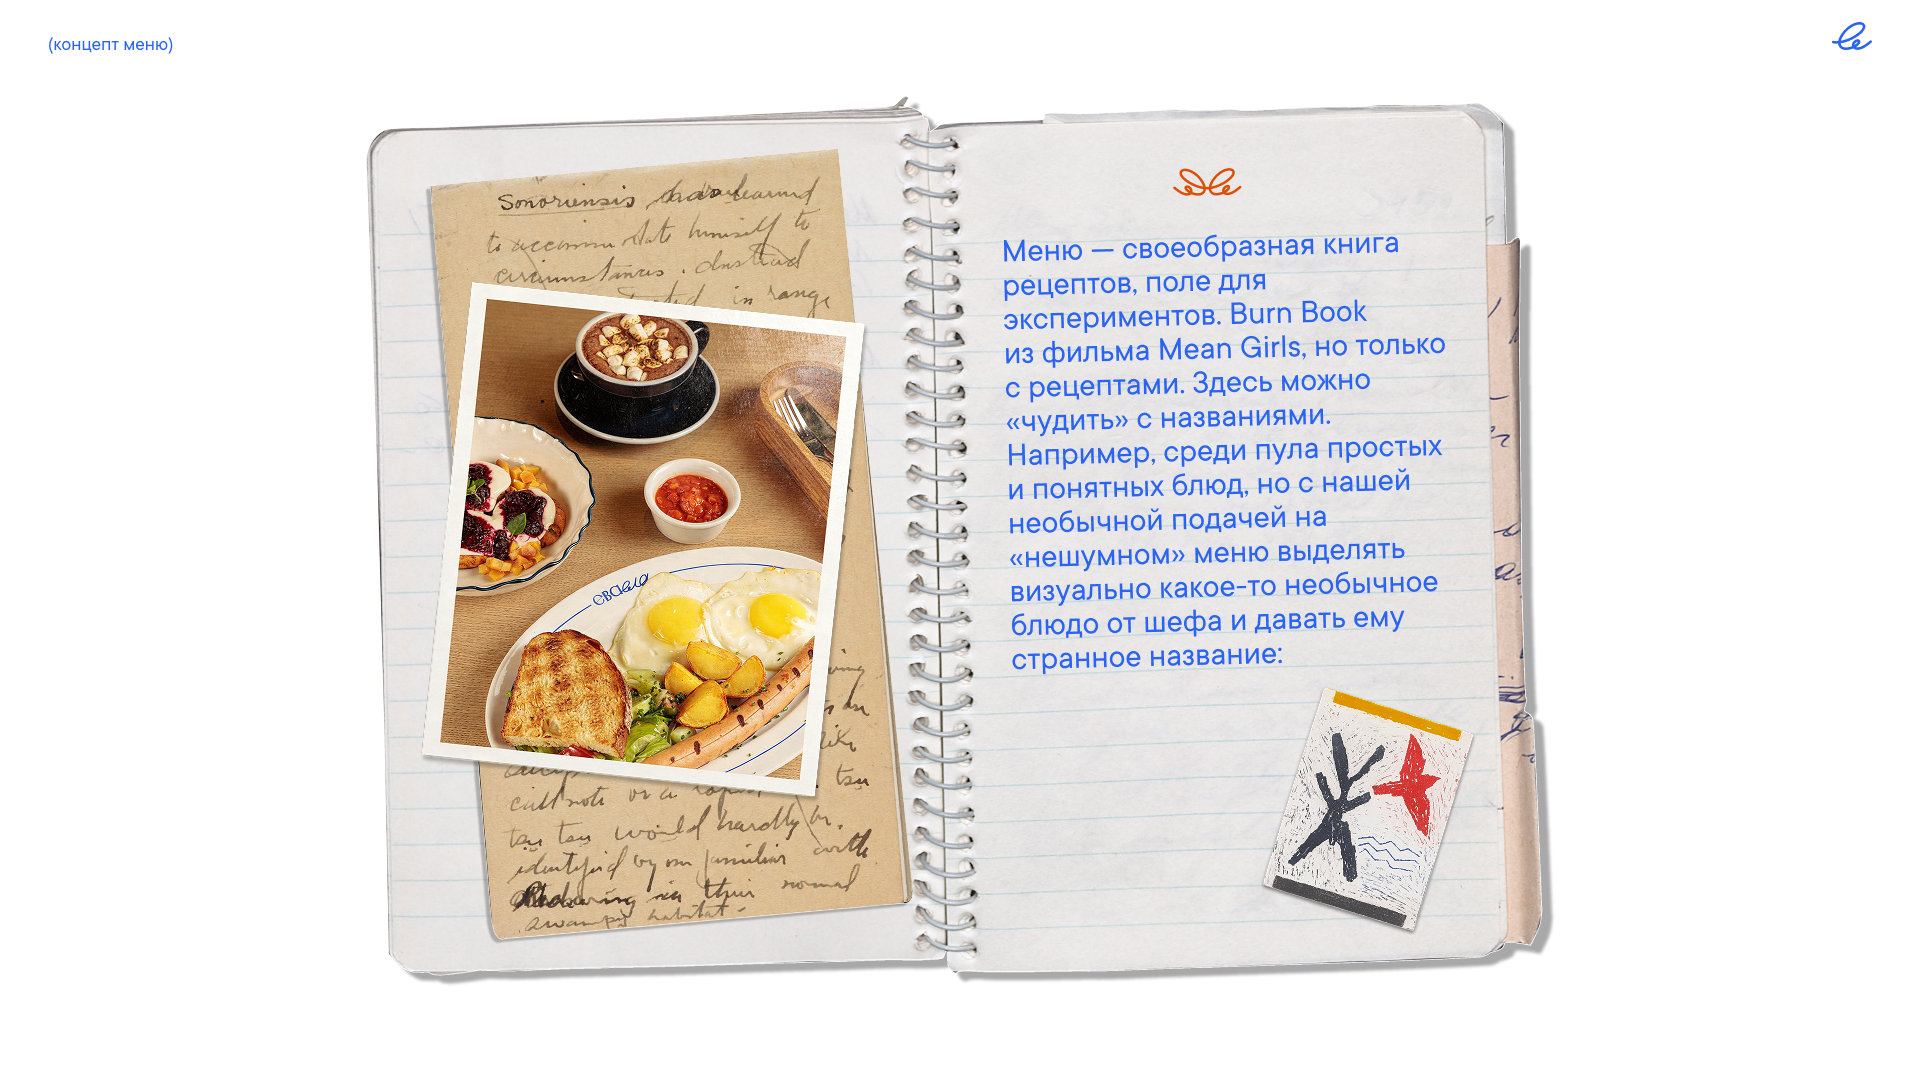 (концепт меню)
Sonoriensis has learned
to accommodate himself to
circumstances.
in range
свобода
call note
tsu tsu would hardly be
identified by our familiar with
in their normal
swampy habitat -
Меню — своеобразная книга
рецептов, поле для
экспериментов. Burn Book
из фильма Mean Girls, но только
с рецептами. Здесь можно
«чудить» с названиями.
Например, среди пула простых
и понятных блюд, но с нашей
необычной подачей на
«нешумном» меню выделять
визуально какое-то необычное
блюдо от шефа и давать ему
странное название: